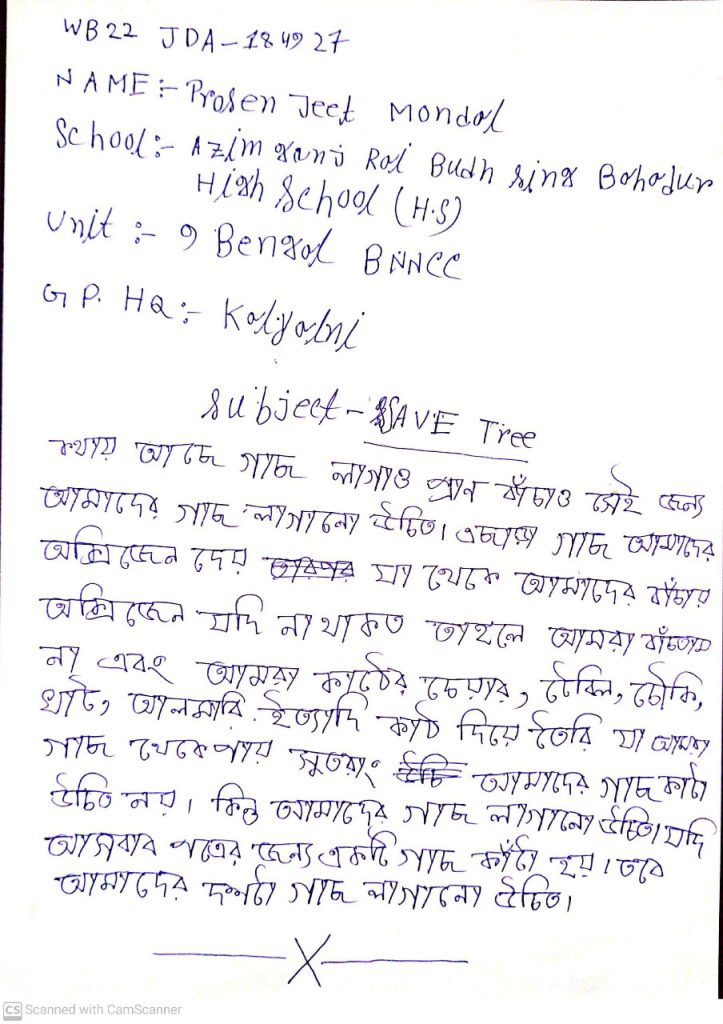 WB22 JDA-184927
NAME:- Prosen Jeet Mondal
School:- Azimganj Rai Budh sing Bahadur
High School (H.S)
Unit :- 9 Bengal BNNCC
GP. HQ:- Kalyalni
Subject - SAVE Tree
কথায় আছে গাছ লাগাও প্রান বাঁচাও সেই জন্যে
আমাদের গাছ লাগানো উচিত। এছাড়া গাছ আমাদের
অক্সিজেন দেয় যা থেকে আমাদের বাঁচায়
অক্সিজেন যদি না থাকত তাহলে আমরা বাঁচতাম
না এবং আমরা কাঠের চেয়ার, টেবিল, চৌকি,
খাট, আলমারি ইত্যাদি কাঠ দিয়ে তৈরি যা আমরা
গাছ থেকে পায় সুতরাং আমাদের গাছ কাটা
উচিত নয়। কিন্তু আমাদের গাছ লাগানো উচিত। যদি
আসবাব পত্রের জন্য একটি গাছ কাঁটা হয়। তবে
আমাদের দশটা গাছ লাগানো উচিত।
X
CS Scanned with CamScanner